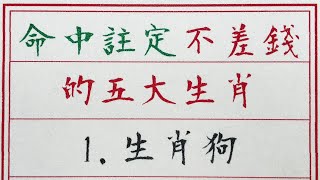 命中註定不差錢
的五大生肖
1.生肖狗